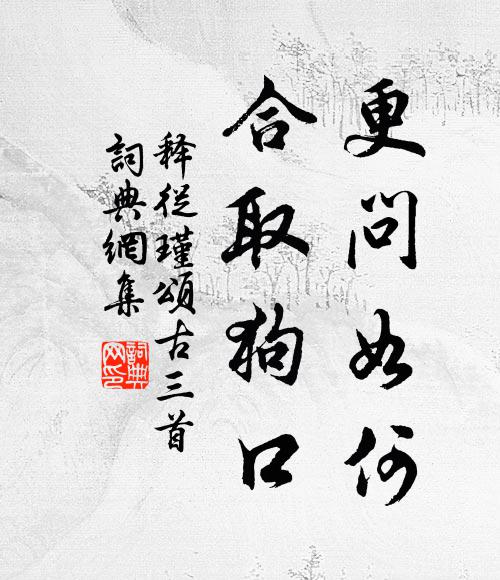 更问如何
合取狗口
释从瑾頌古三首
詞典網集
詞典网印